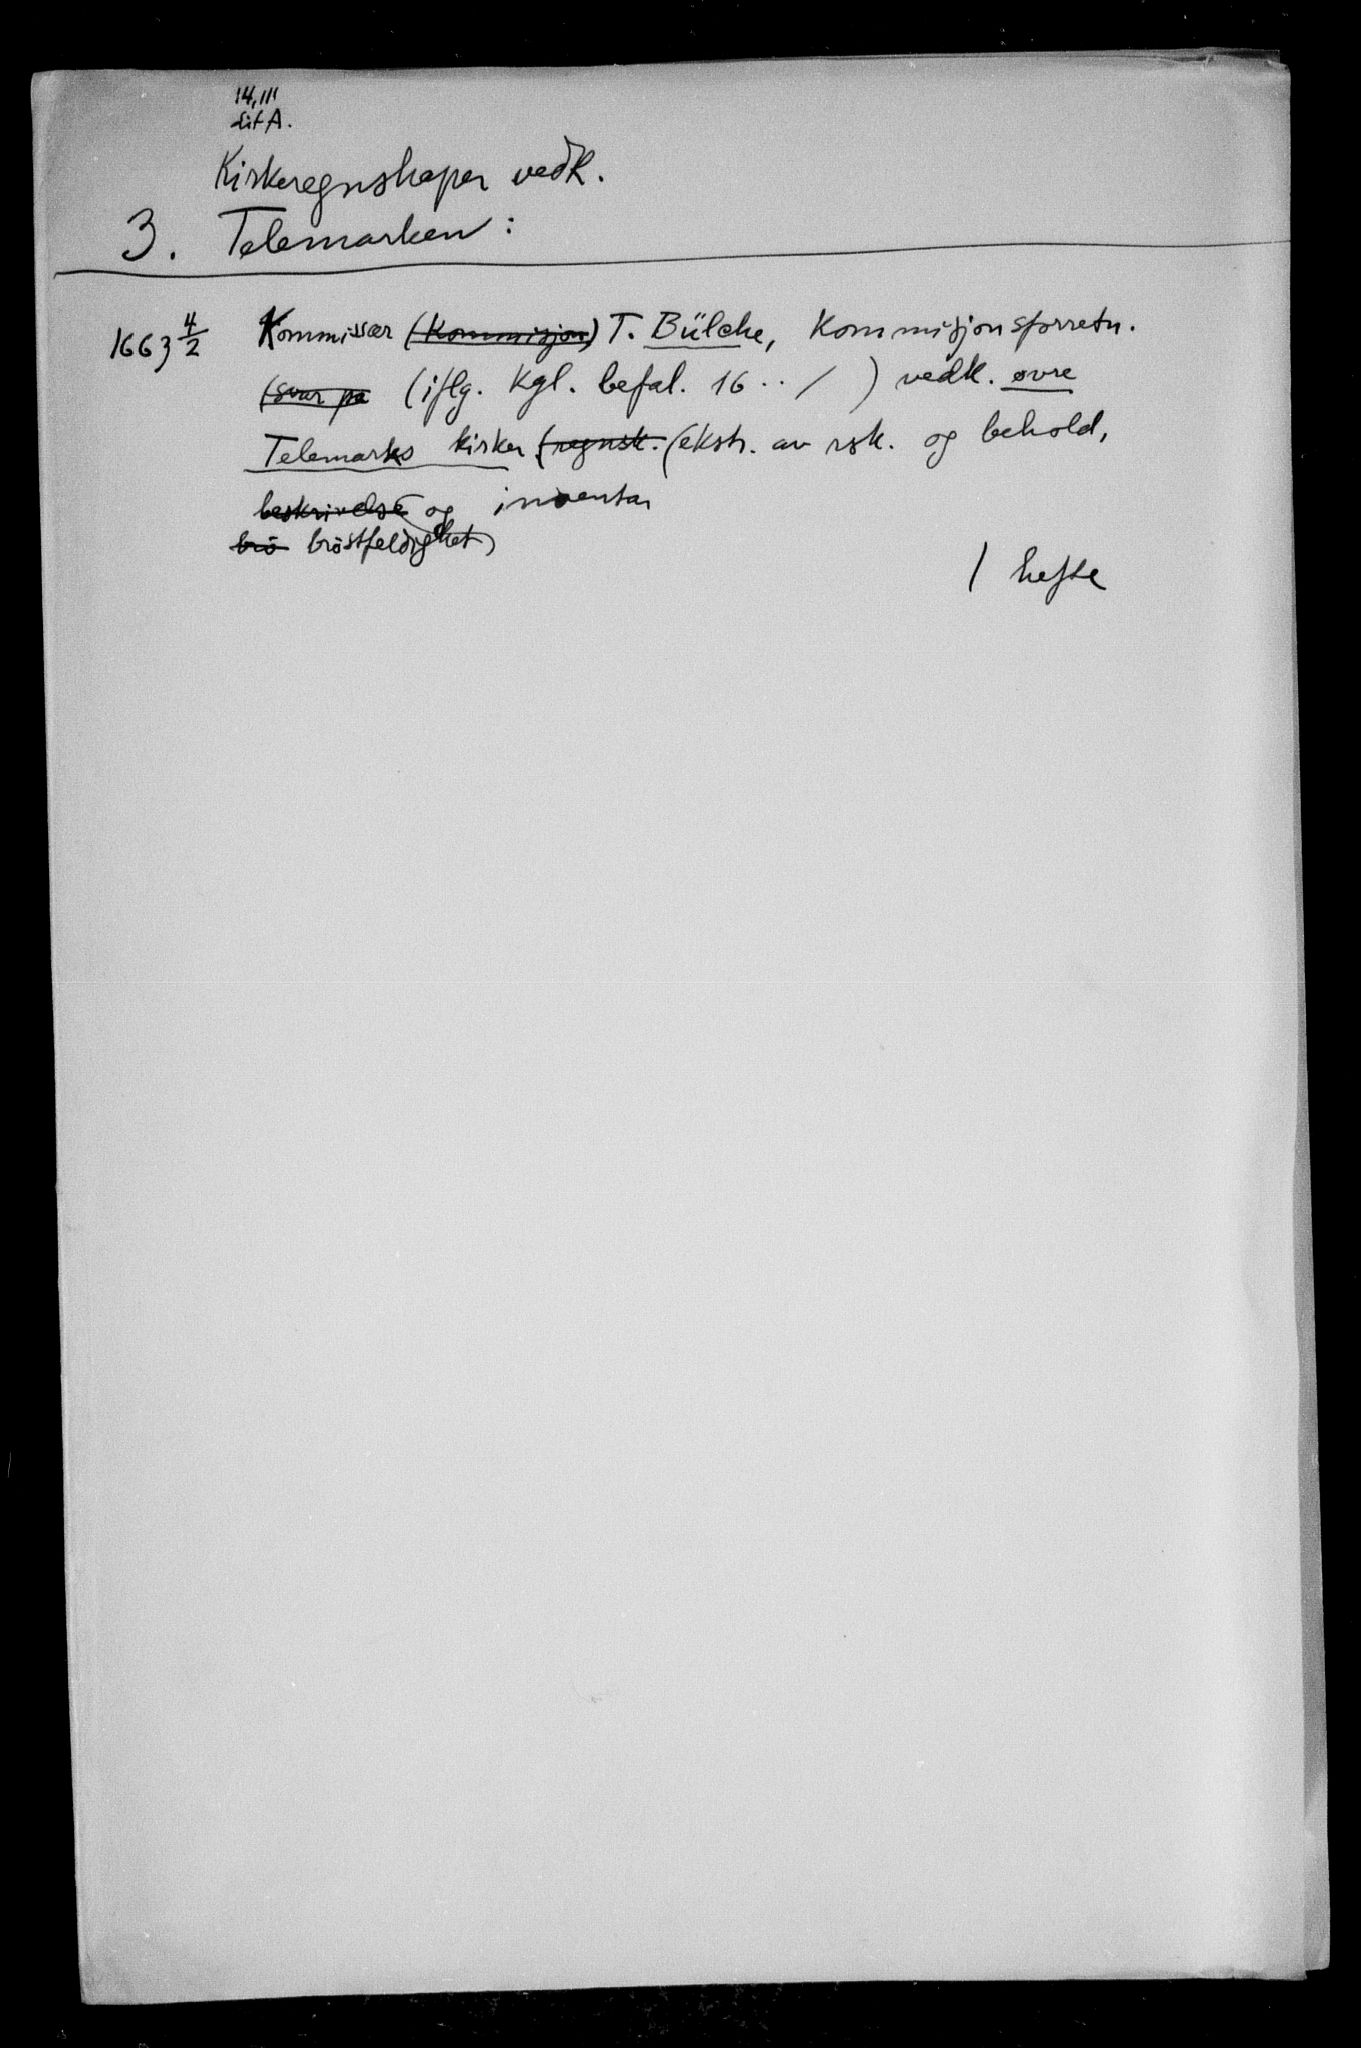 14, III
Lit A.
Kirkeregnskaper vedk.
3. Telemarken:
1663 4/2 Kommissær (Kommisjon) T. Bülche, Kommisjonsforretn.
(svar på (iflg. Kgl. befal. 16 . . / ) vedk. øvre
Telemarks kirker (regnsk. (ekstr. av rsk. og behold,
beskrivelse og inventar
brö bröstfeldighet)
1 hefte